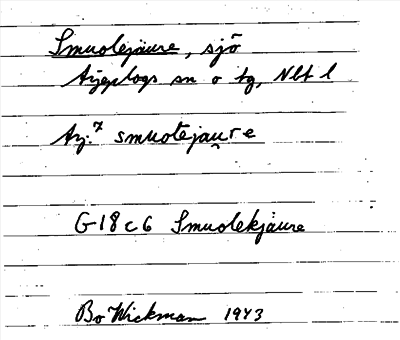 Smuolejaure, sjö
Arjeplogs sn o tg, Nbt l
Arj.⁷ smuo̅tejau̯re
G18c6 Smuolekjaure
Bo Wickman 1943